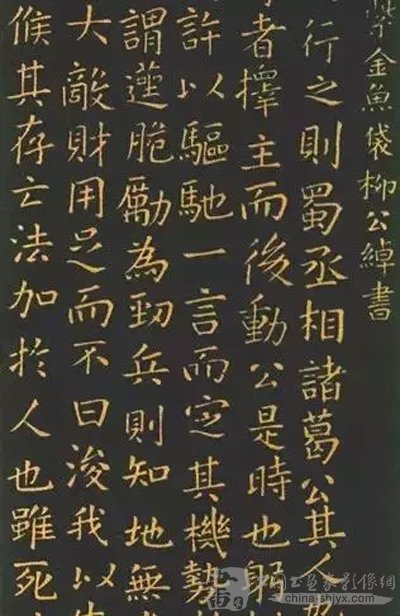 金魚袋柳公綽書
行之則蜀丞相諸葛公其人
者擇主而後動公是時也躬
許以驅馳一言而定其機勢
謂脆勵為勁兵則知地無
大敵財用足而不曰浚我以
候其存亡法加於人也雖死
家影像網
www.china-shjyx.com